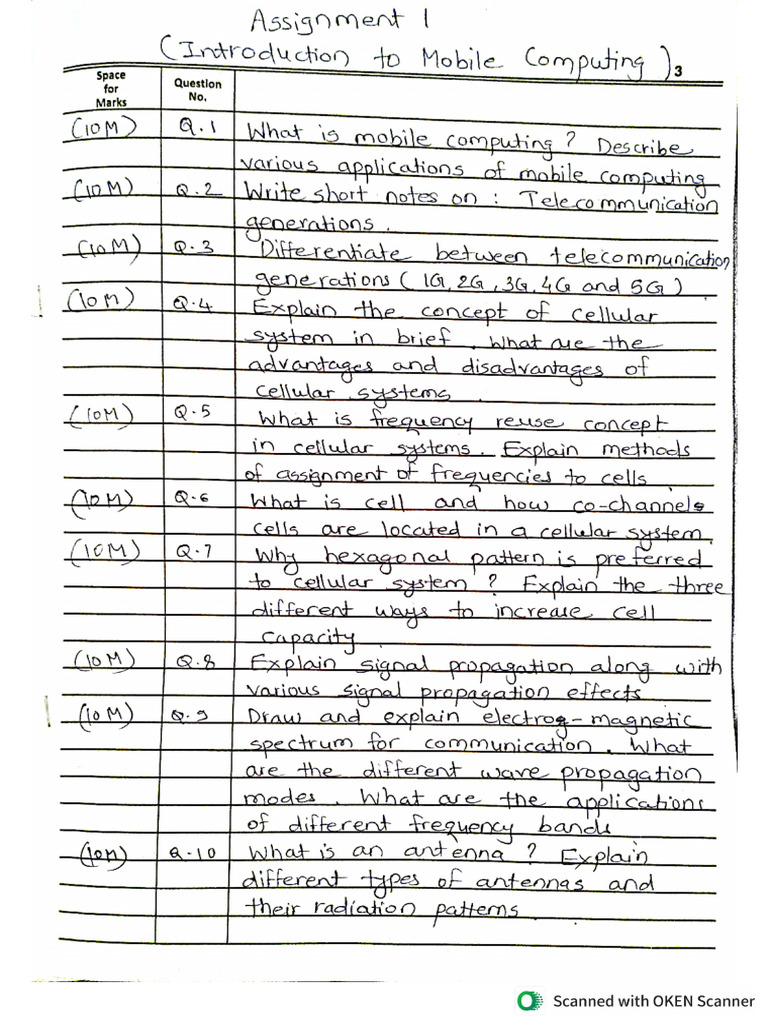 Assignment 1
(Introduction to Mobile Computing)
3
Space for Marks
Question No.
(10M) Q.1 What is mobile computing? Describe
various applications of mobile computing
(10M) Q.2 Write short notes on : Telecommunication
generations.
(10M) Q.3 Differentiate between telecommunication
generations (1G, 2G, 3G, 4G and 5G)
(10M) Q.4 Explain the concept of cellular
system in brief. What are the
advantages and disadvantages of
cellular systems
(10M) Q.5 What is frequency reuse concept
in cellular systems. Explain methods
of assignment of frequencies to cells
(10M) Q.6 What is cell and how co-channels
cells are located in a cellular system.
(10M) Q.7 Why hexagonal pattern is preferred
to cellular system ? Explain the three
different ways to increase cell
capacity.
(10M) Q.8 Explain signal propagation along with
various signal propagation effects
(10M) Q.9 Draw and explain electro-magnetic
spectrum for communication. What
are the different wave propagation
modes. What are the applications
of different frequency bands
(10M) Q.10 What is an antenna ? Explain
different types of antennas and
their radiation patterns.
Scanned with OKEN Scanner